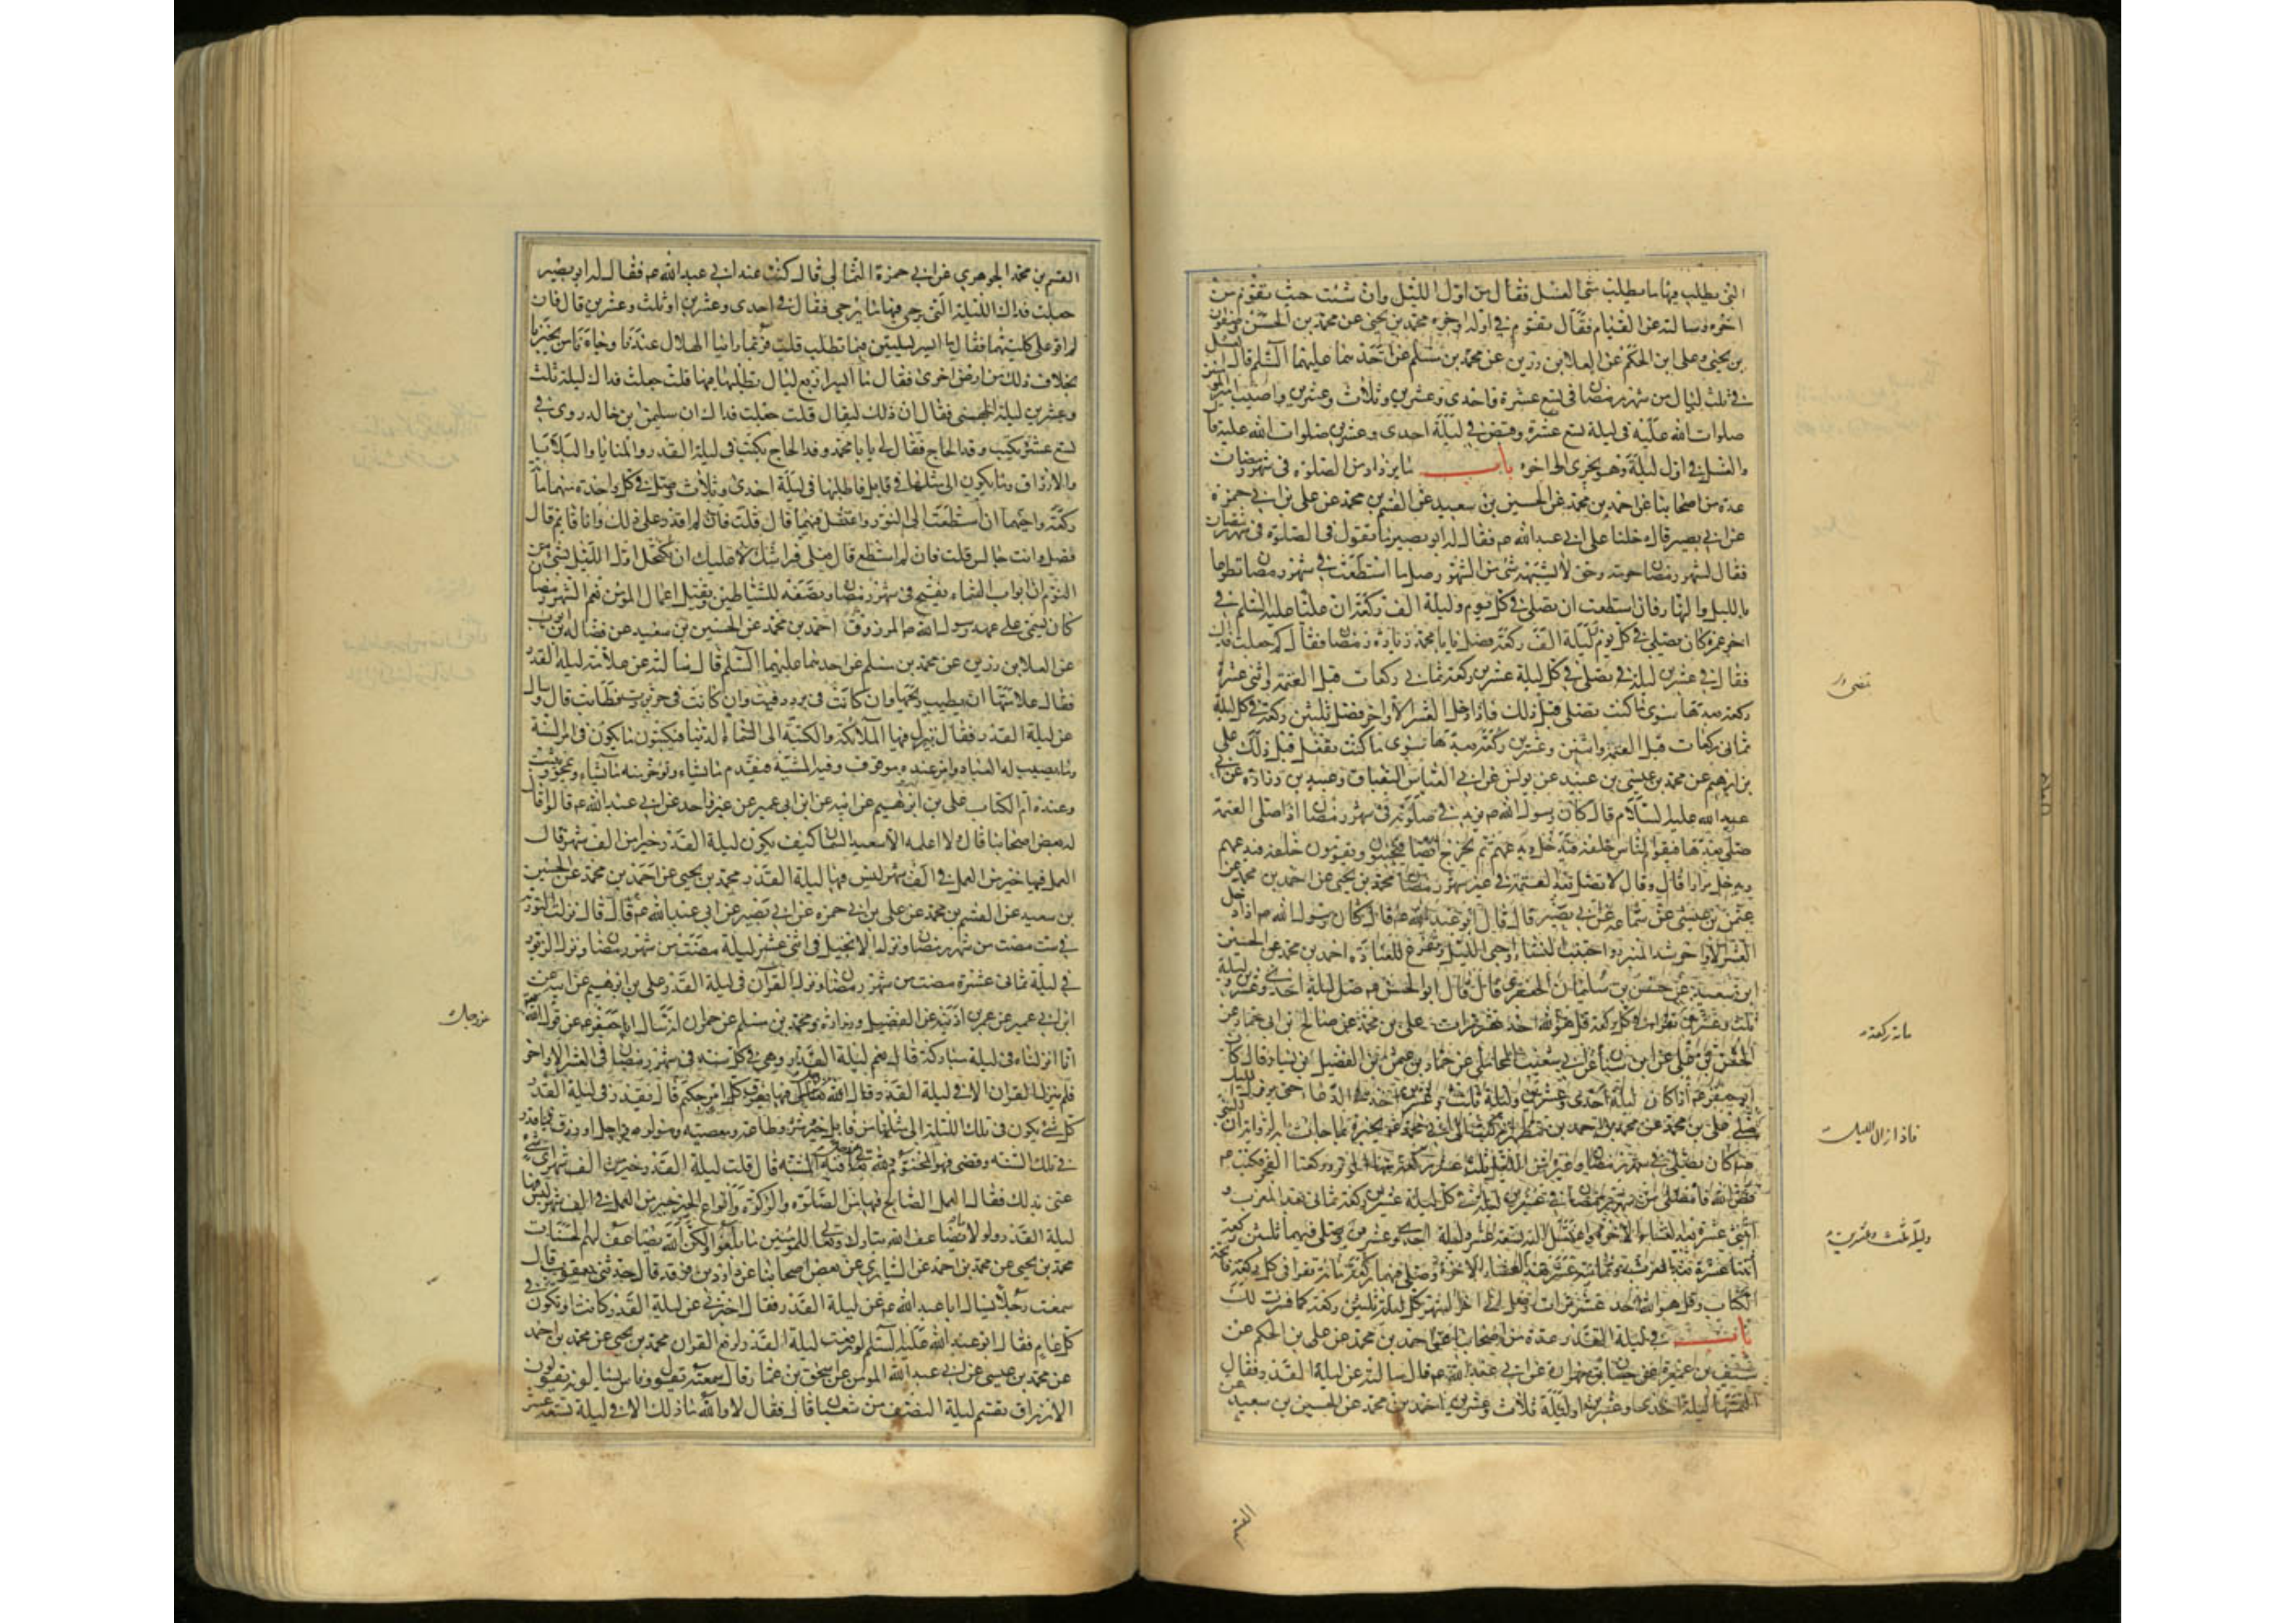 التى يطلب فيها ما يطلب متى الغسل فقال من اول الليل وان شئت حيث تقوم من
اخره وسالته عن القيام فقال تقوم في اوله واخره محمد بن يحيى عن محمد بن الحسين وصفوان
بن يحيى وعلى ابن الحكم عن العلا بن رزين عن محمد بن مسلم عن احدهما عليهما السلم قال الغسل
في ثلث ليال من شهر رمضان في تسع عشرة واحدى وعشرين وثلاث وعشرين واصيب امير المؤمنين
صلوات الله عليه في ليلة تسع عشرة وقبض في ليلة احدى وعشرين صلوات الله عليه قال
والغسل في اول ليلة وهو يجزى الى اخره باب ما يزاد من الصلوة فى شهر رمضان
عدة من اصحابنا عن احمد بن محمد عن الحسين بن سعيد عن القسم بن محمد عن على بن ابى حمزة
عن ابى بصير قال دخلنا على ابى عبد الله ع فقال له ابو بصير ما تقول في الصلوة في شهر رمضان
فقال لشهر رمضان حرمة وحق لا يشبهه شئ من الشهور صل ما استطعت في شهر رمضان تطوعا
بالليل والنهار فان استطعت ان تصلى في كل يوم وليلة الف ركعة ان عليا عليه السلم في
اخر عمره كان يصلى في كل يوم وليلة الف ركعة فصل يا با محمد زيادة في رمضان فقال كم جعلت فداك
فقال في عشرين ليلة تصلى في كل ليلة عشرين ركعة ثمانى ركعات قبل العتمة واثنى عشرة
ركعة بعدها سوى ما كنت تصلى قبل ذلك فاذا دخل العشر الأواخر فصل ثلثين ركعة في كل ليلة
ثمانى ركعات قبل العتمة واثنين وعشرين ركعة بعدها سوى ما كنت تفعل قبل ذلك على
بن ابرهيم عن محمد بن عيسى بن عبيد عن يونس عن ابى العباس البقباق وعبيد بن زرارة عن ابى
عبد الله عليه السلام قال كان رسول الله ص يزيد في صلوته في شهر رمضان اذا صلى العتمة
صلى بعدها فيقوم الناس خلفه فيدخل ويدعهم ثم يخرج ايضا فيجيئون ويقومون خلفه فيدعهم
ويدخل مرارا قال وقال لا تصل بعد العتمة في غير شهر رمضان محمد بن يحيى عن احمد بن محمد عن
عثمن بن عيسى عن سماعة عن ابى بصير قال قال ابو عبد الله ع قال كان رسول الله ص اذا دخل
العشر الأواخر شد المئزر واجتنب النساء واحيى الليل وتفرغ للعبادة احمد بن محمد عن الحسين
ابن سعيد عن سليمان الجعفرى قال قال ابو الحسن ع صل ليلة احدى وعشرين وليلة
ثلث وعشرين تقرا في كل ركعة قل هو الله احد عشر مرات على بن محمد عن صالح بن ابى حماد عن
مائة ركعة
ابو جعفر ع اذا كان ليلة احدى وعشرين وليلة ثلث وعشرين اخذ في الدعا حتى يزول الليل
فاذا زال الليل
وليلة ثلث وعشرين
الكتاب وقل هو الله احد عشر مرات
باب في ليلة القدر عدة من اصحابنا عن احمد بن محمد عن على بن الحكم عن
سيف بن عميرة عن حسان بن مهران عن ابى عبد الله ع قال سالته عن ليلة القدر فقال
التمسها ليلة احدى وعشرين او ليلة ثلاث وعشرين احمد بن محمد عن الحسين بن سعيد عن
القسم
القسم بن محمد الجوهري عن ابى حمزة الثمالى قال كنت عند ابى عبد الله ع فقال له ابو بصير
جعلت فداك الليلة التى يرجى فيها ما يرجى فقال في احدى وعشرين او ثلث وعشرين قال فان
لم اقو على كلتيهما فقال ما ايسر ليلتين فيما تطلب قلت فربما راينا الهلال عندنا وجاءنا من يخبرنا
بخلاف ذلك من ارض اخرى فقال ما ايسر اربع ليال تطلبها فيها قلت جعلت فداك ليلة ثلث
وعشرين ليلة الجهنى فقال ان ذلك ليقال قلت جعلت فداك ان سليمن بن خالد روى في
تسع عشرة يكتب وفد الحاج فقال لى يا با محمد وفد الحاج يكتب في ليلة القدر والمنايا والبلايا
والارزاق وما يكون الى مثلها في قابل فاطلبها في ليلة احدى وثلاث وصل في كل واحدة منهما مائة
ركعة واحيهما ان استطعت الى النور واغتسل فيهما قال قلت فان لم اقدر على ذلك وانا قايم قال
فصل وانت جالس قلت فان لم استطع قال فعلى فراشك لا عليك ان تكتحل اول الليل بشئ من
النوم ان ابواب السماء يفتح في شهر رمضان وتصفد الشياطين وتقبل اعمال المؤمنين نعم الشهر رمضان
كان يسمى على عهد رسول الله ص المرزوق احمد بن محمد عن الحسين بن سعيد عن فضالة بن ايوب
عن العلا بن رزين عن محمد بن مسلم عن احدهما عليهما السلم قال سالته عن علامة ليلة القدر
فقال علامتها ان يطيب ريحها وان كانت في برد دفيت وان كانت في حر بردت فطابت قال وسال
عن ليلة القدر فقال تنزل فيها الملائكة والكتبة الى السماء الدنيا فيكتبون ما يكون في امر السنة
وما يصيب العباد وامر عنده موقوف وفيه المشية فيقدم ما يشاء ويؤخر منه ما يشاء ويمحو ويثبت
وعنده ام الكتاب على بن ابرهيم عن ابيه عن ابن ابى عمير عن غير واحد عن ابى عبد الله ع قالوا قال
له بعض اصحابنا قال لا اعلمه الا سعيد السمان كيف يكون ليلة القدر خيرا من الف شهر قال
العمل فيها خير من العمل في الف شهر ليس فيها ليلة القدر محمد بن يحيى عن احمد بن محمد عن الحسين
بن سعيد عن القسم بن محمد عن على بن ابى حمزة عن ابى بصير عن ابى عبد الله ع قال قال نزلت التورية
في ست مضت من شهر رمضان ونزل الانجيل في اثنى عشر ليلة مضت من شهر رمضان ونزل الزبور
في ليلة ثمانى عشرة مضت من شهر رمضان ونزل القرآن في ليلة القدر على بن ابرهيم عن ابيه عن
ابن ابى عمير عن عمر بن اذينة عن الفضيل وزرارة ومحمد بن مسلم عن حمران انه سال ابا جعفر ع عن قول الله
عز وجل
انا انزلناه في ليلة مباركة قال نعم ليلة القدر وهى في كل سنة في شهر رمضان في العشر الاواخر
فلم ينزل القران الا في ليلة القدر قال الله تعالى فيها يفرق كل امر حكيم قال يقدر في ليلة القدر
كل شئ يكون في تلك الليلة الى مثلها من قابل خير وشر وطاعة ومعصية ومولود واجل او رزق فما قدر
في تلك السنة وقضى فهو المحتوم ولله تعالى فيه المشية قال قلت ليلة القدر خير من الف شهر اى شئ
عنى بذلك فقال العمل الصالح فيها من الصلوة والزكوة وانواع الخير خير من العمل في الف شهر ليس فيها
ليلة القدر ولولا ما يضاعف الله تبارك وتعالى للمؤمنين ما بلغوا ولكن الله يضاعف لهم الحسنات
محمد بن يحيى عن محمد بن احمد عن السيارى عن بعض اصحابنا عن داود بن فرقد قال حدثنى يعقوب قال
سمعت رجلا يسال ابا عبد الله ع عن ليلة القدر فقال اخبرنى عن ليلة القدر كانت او تكون في
كل عام فقال ابو عبد الله عليه السلم لو رفعت ليلة القدر لرفع القران محمد بن يحيى عن محمد بن احمد
عن محمد بن عيسى عن ابى عبد الله المؤمن عن اسحق بن عمار قال سمعته يقول وناس يسالونه يقولون
الارزاق يقسم ليلة النصف من شعبان قال فقال لا والله ما ذلك الا في ليلة تسع عشرة